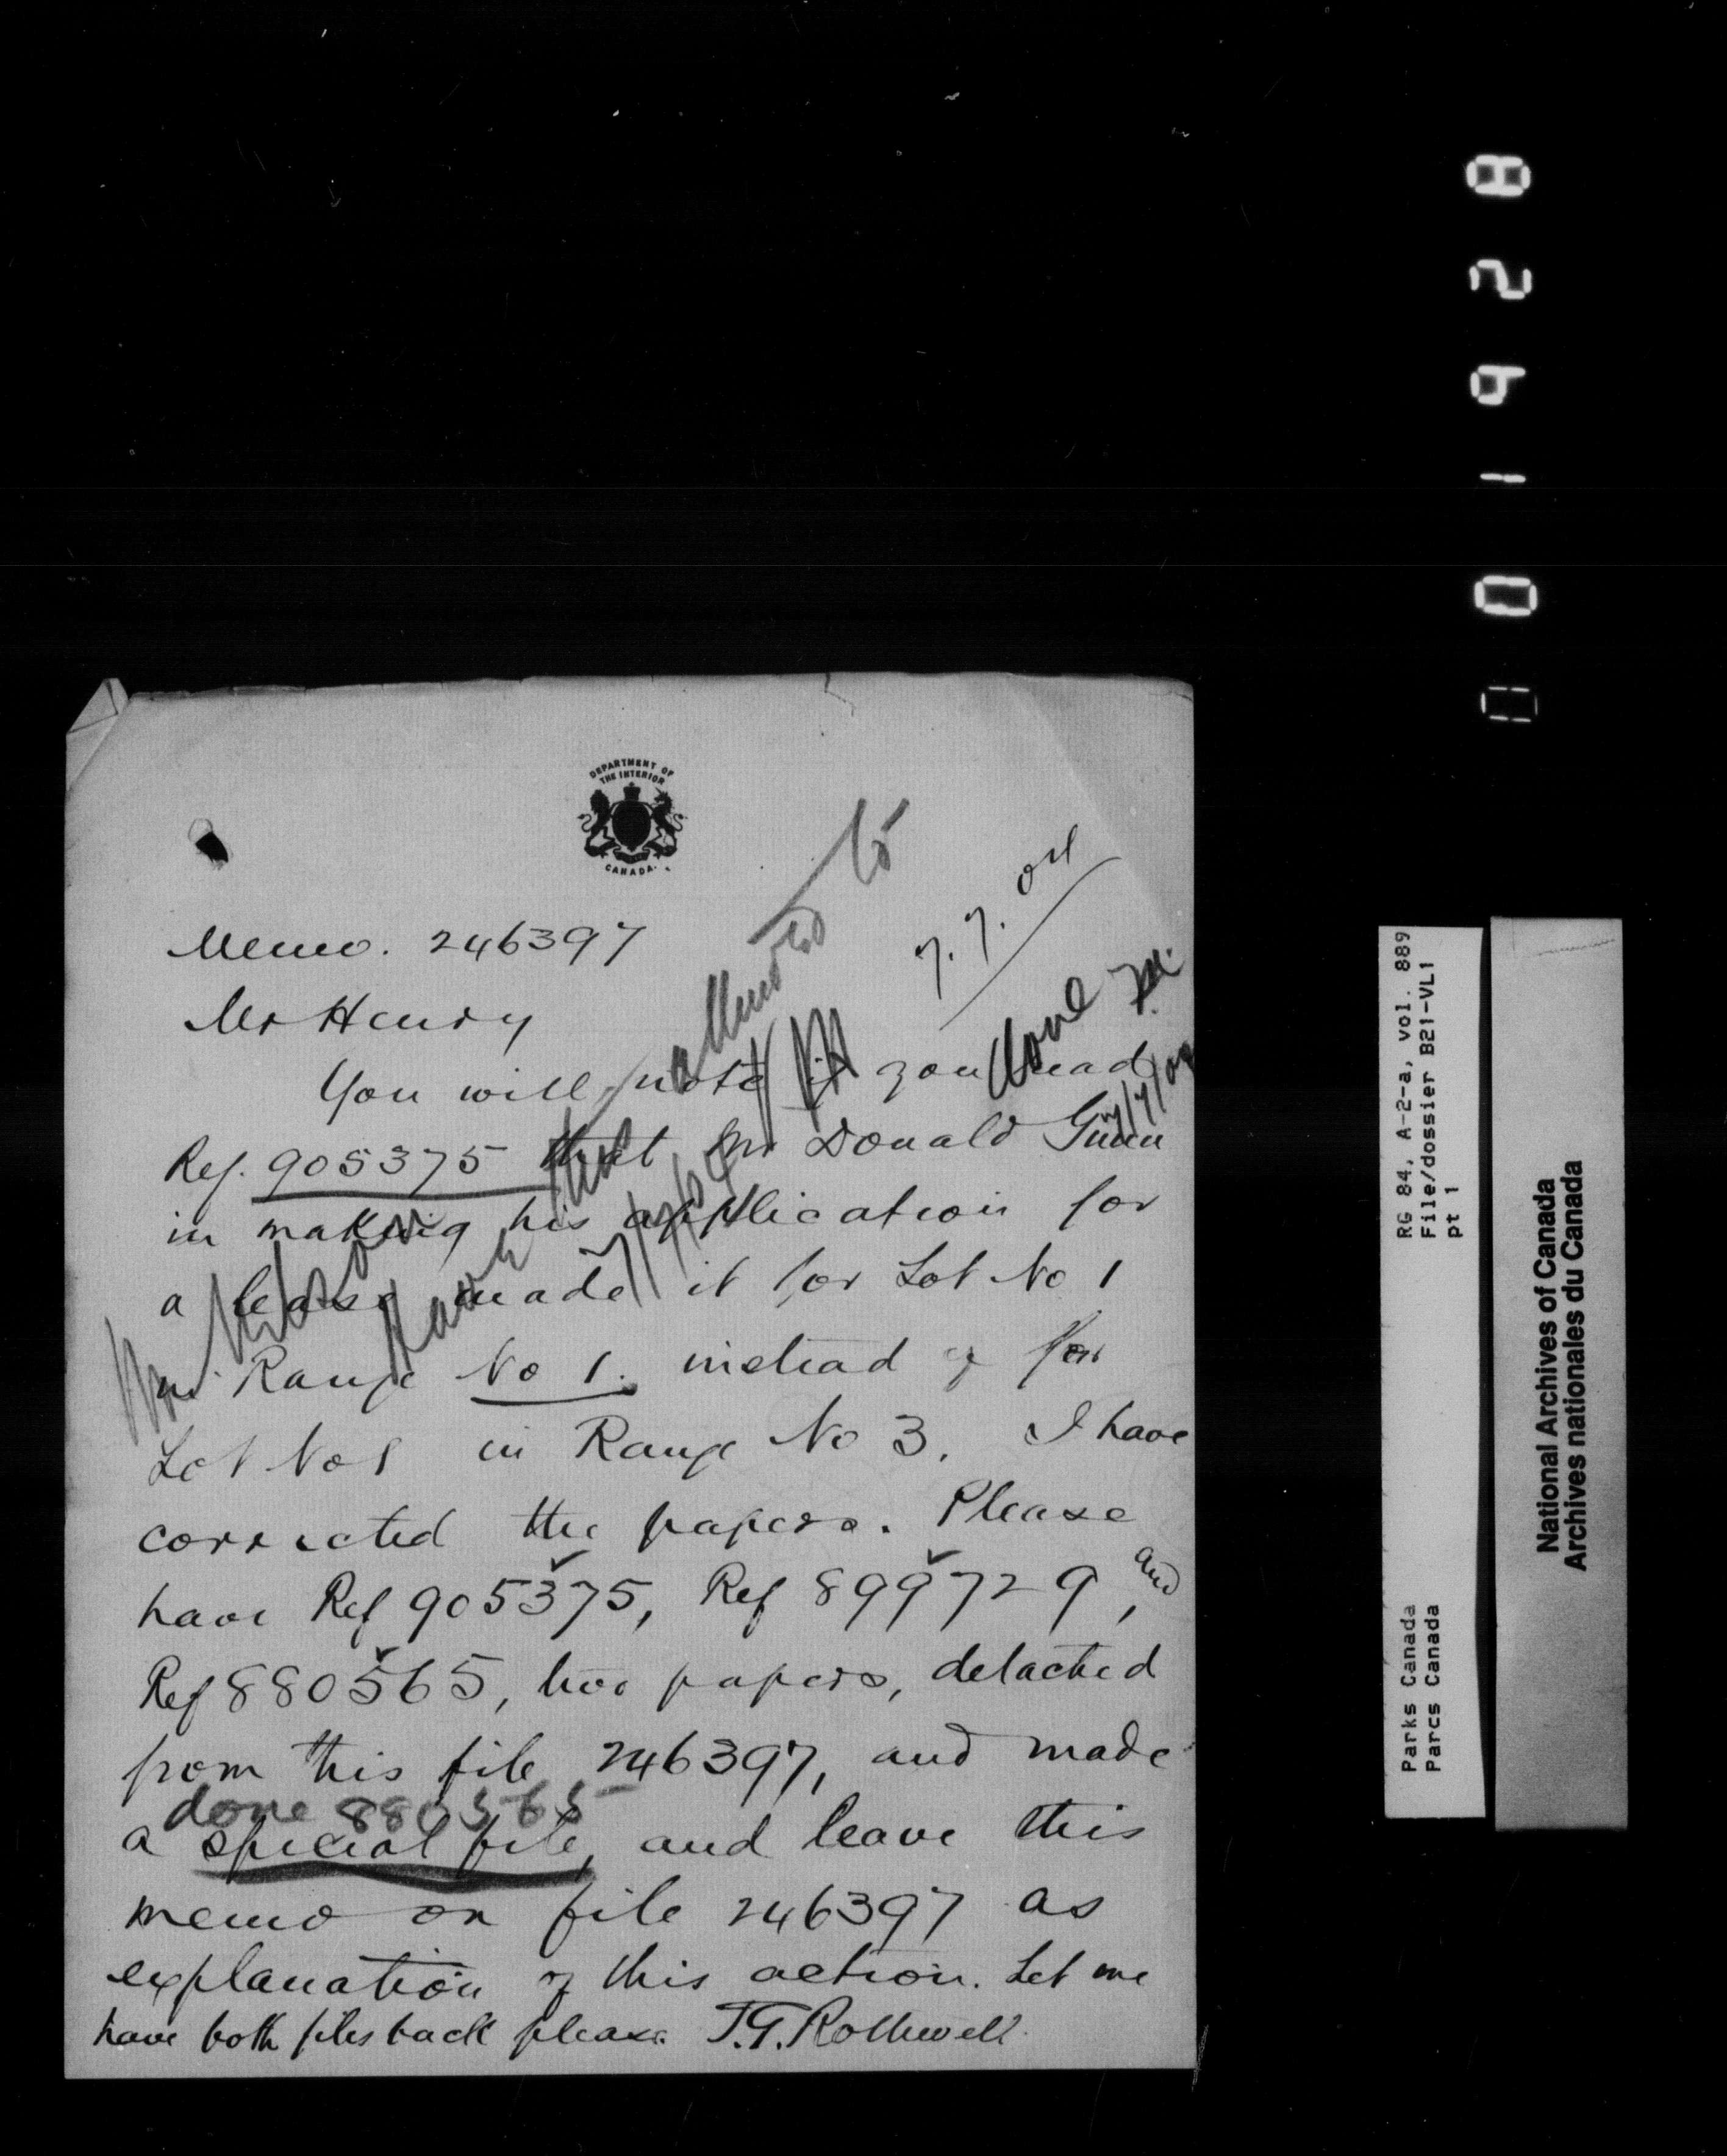 DEPARTMENT OF
THE INTERIOR
CANADA.
7.7.04
Memo. 246397
Mr Henry
You will note if you read
Ref. 905375 that Mr Donald Gunn
in making his application for
a lease made it for Lot No 1
in Range No 1. instead of for
Lot No 1 in Range No 3. I have
corrected the papers. Please
have Ref 905375, Ref 899729, and
Ref 880565, two papers, detached
from this file 246397, and made
done 880565
a special file, and leave this
memo on file 246397 as
explanation of this action. Let me
have both files back please T.G. Rothwell
Mr
Have this attended to
7/7/04
Done
7/7/04
0019128
RG 84, A-2-a, vol. 889
File/dossier B21-VL1
pt 1
Parks Canada
Parcs Canada
National Archives of Canada
Archives nationales du Canada